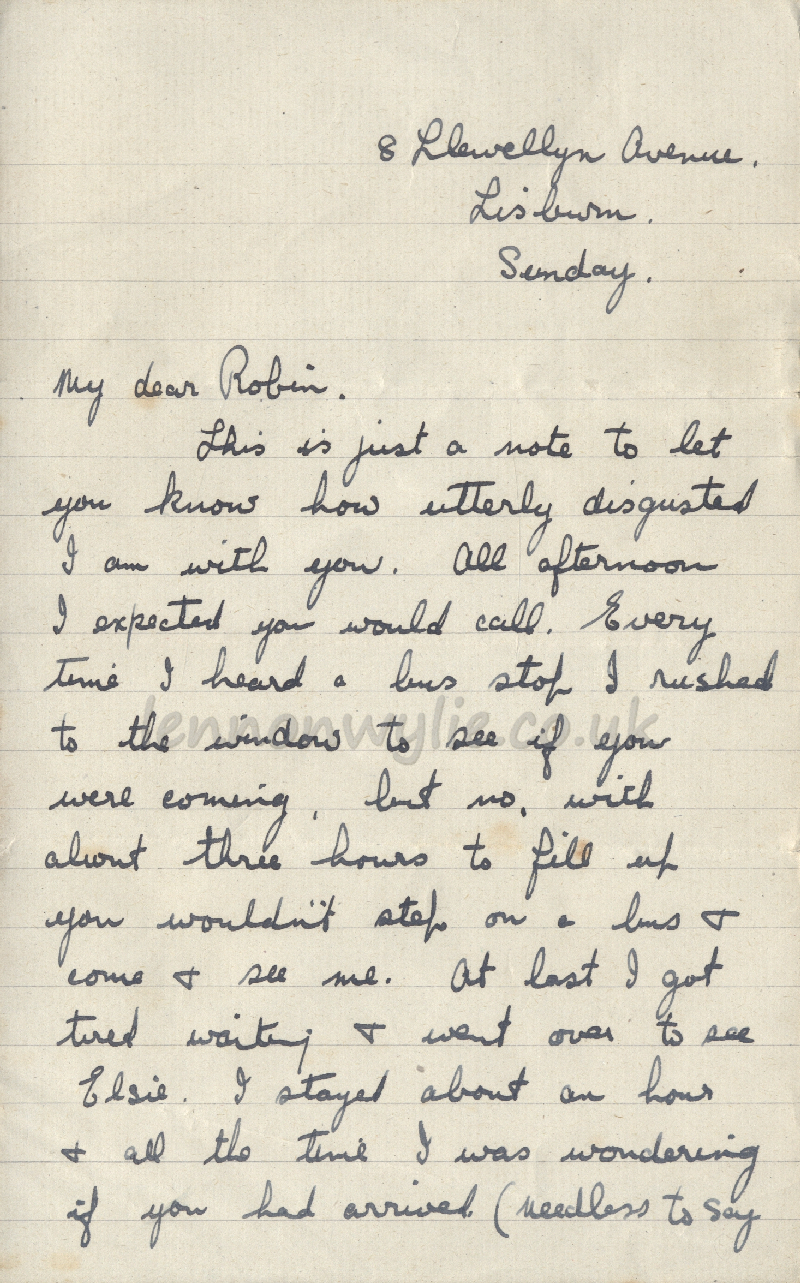 8 Llewellyn Avenue.
Lisburn.
Sunday.
My dear Robin.
This is just a note to let
you know how utterly disgusted
I am with you. All afternoon
I expected you would call. Every
time I heard a bus stop I rushed
to the window to see if you
were coming, but no, with
about three hours to fill up
you wouldn't step on a bus &
come & see me. At last I got
tired waiting & went over to see
Elsie. I stayed about an hour
& all the time I was wondering
if you had arrived (needless to say
lennonwylie.co.uk